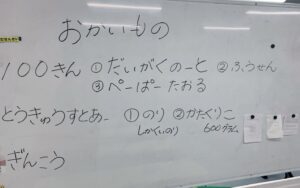 おかいもの
100きん ①だいがくのーと ②ふうせん
③ぺーぱーたおる
とうきゅうすとあー ①のり ②かたくりこ
しかくいのり 600グラム
ぎんこう